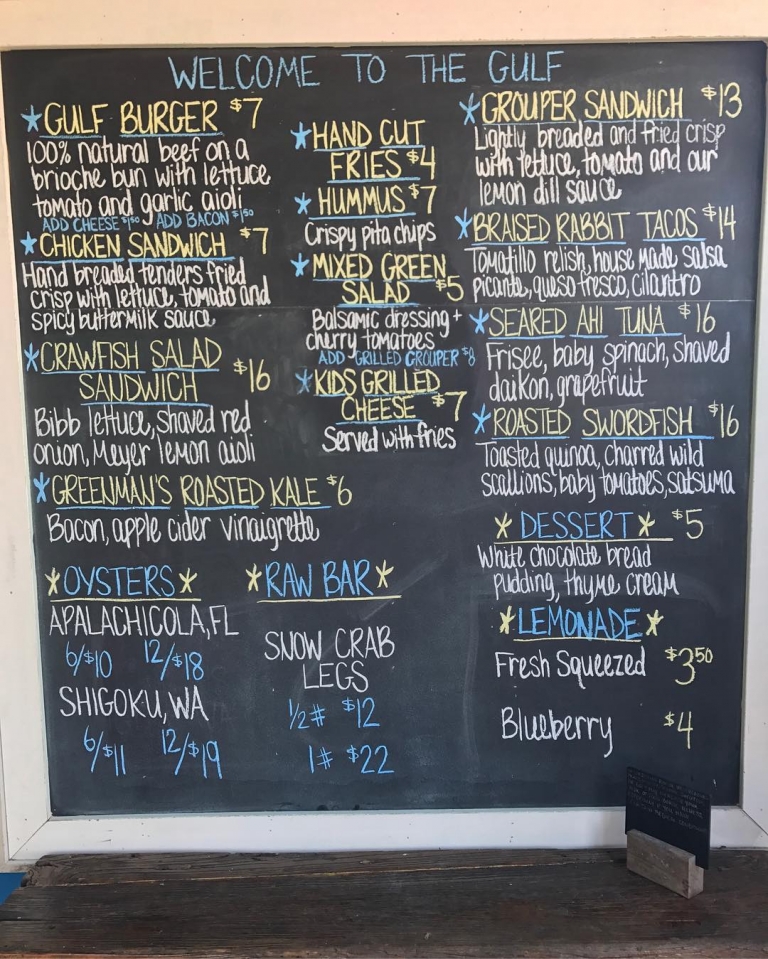 WELCOME TO THE GULF
GULF BURGER $7
100% natural beef on a
brioche bun with lettuce
tomato and garlic aioli
ADD CHEESE $1.50 ADD BACON $1.50
CHICKEN SANDWICH $7
Hand breaded tenders fried
crisp with lettuce, tomato and
spicy buttermilk sauce
CRAWFISH SALAD
SANDWICH $16
Bibb lettuce, shaved red
onion, Meyer lemon aioli
GREENMAN'S ROASTED KALE $6
Bacon, apple cider vinaigrette
HAND CUT
FRIES $4
HUMMUS $7
Crispy pita chips
MIXED GREEN
SALAD $5
Balsamic dressing +
cherry tomatoes
ADD GRILLED GROUPER $8
KIDS GRILLED
CHEESE $7
Served with fries
GROUPER SANDWICH $13
Lightly breaded and fried crisp
with lettuce, tomato and our
lemon dill sauce
BRAISED RABBIT TACOS $14
Tomatillo relish, house made salsa
picante, queso fresco, cilantro
SEARED AHI TUNA $16
Frisee, baby spinach, shaved
daikon, grapefruit
ROASTED SWORDFISH $16
Toasted quinoa, charred wild
scallions, baby tomatoes, satsuma
OYSTERS
APALACHICOLA, FL
6/$10 12/$18
SHIGOKU, WA
6/$11 12/$19
RAW BAR
SNOW CRAB
LEGS
1/2# $12
1# $22
DESSERT $5
White chocolate bread
pudding, thyme cream
LEMONADE
Fresh Squeezed $3.50
Blueberry $4